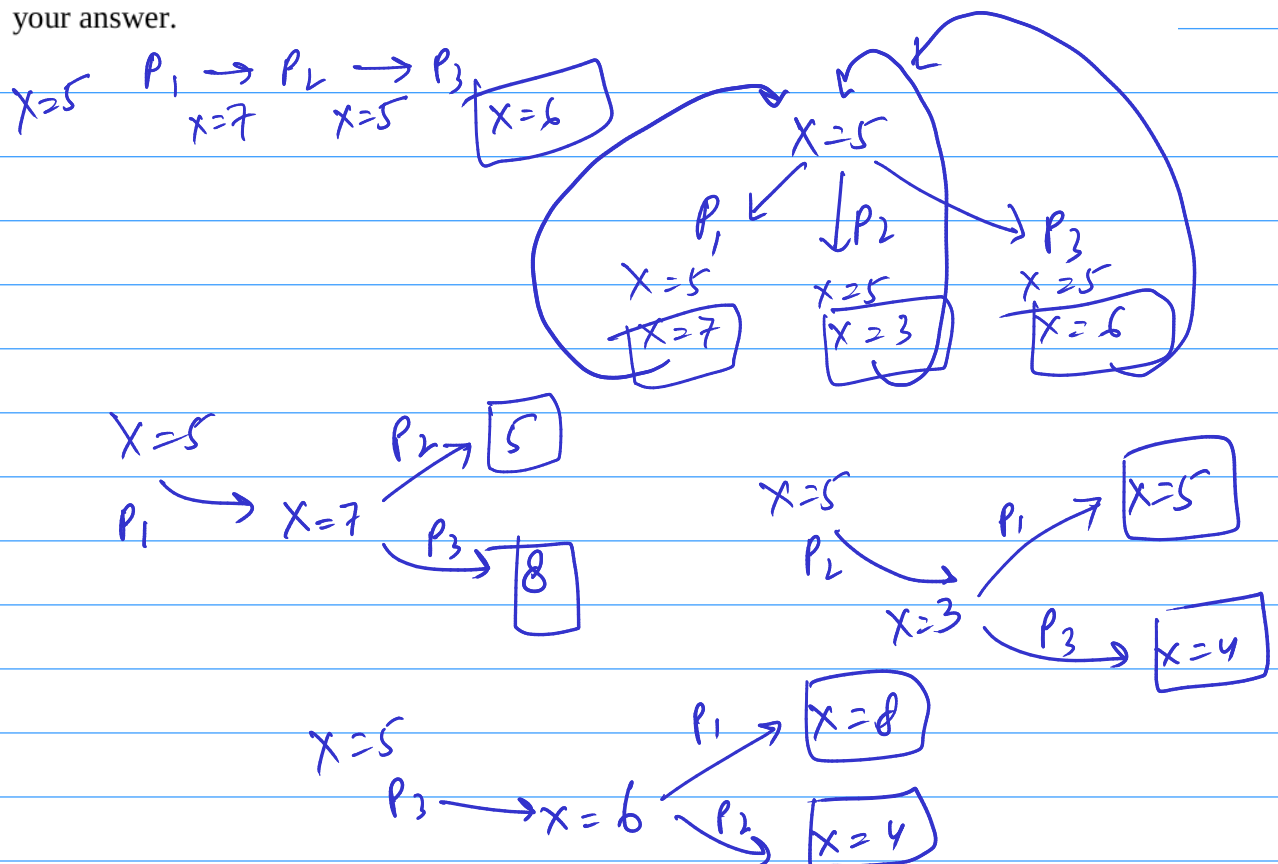 your answer.
X=5 P1 → P2 → P3
x=7 x=5 x=6
X=5
P1 P2 P3
X=5 x=5 x=5
x=7 x=3 x=6
X=5 P2 5
P1 X=7 P3 8
X=5 P1 X=5
P2 X=3 P3 x=4
X=5 P1 X=8
P3 → x=6 P2 x=4